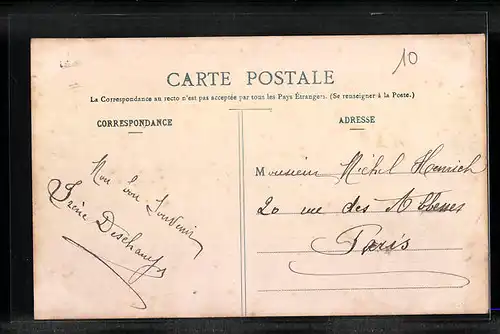 10
CARTE POSTALE
La Correspondance au recto n'est pas acceptée par tous les Pays Étrangers. (Se renseigner à la Poste.)
CORRESPONDANCE
Mon bon Souvenir
Irène Deschamps
ADRESSE
Monsieur Michel Henrich
20 rue des Abbesses
Paris